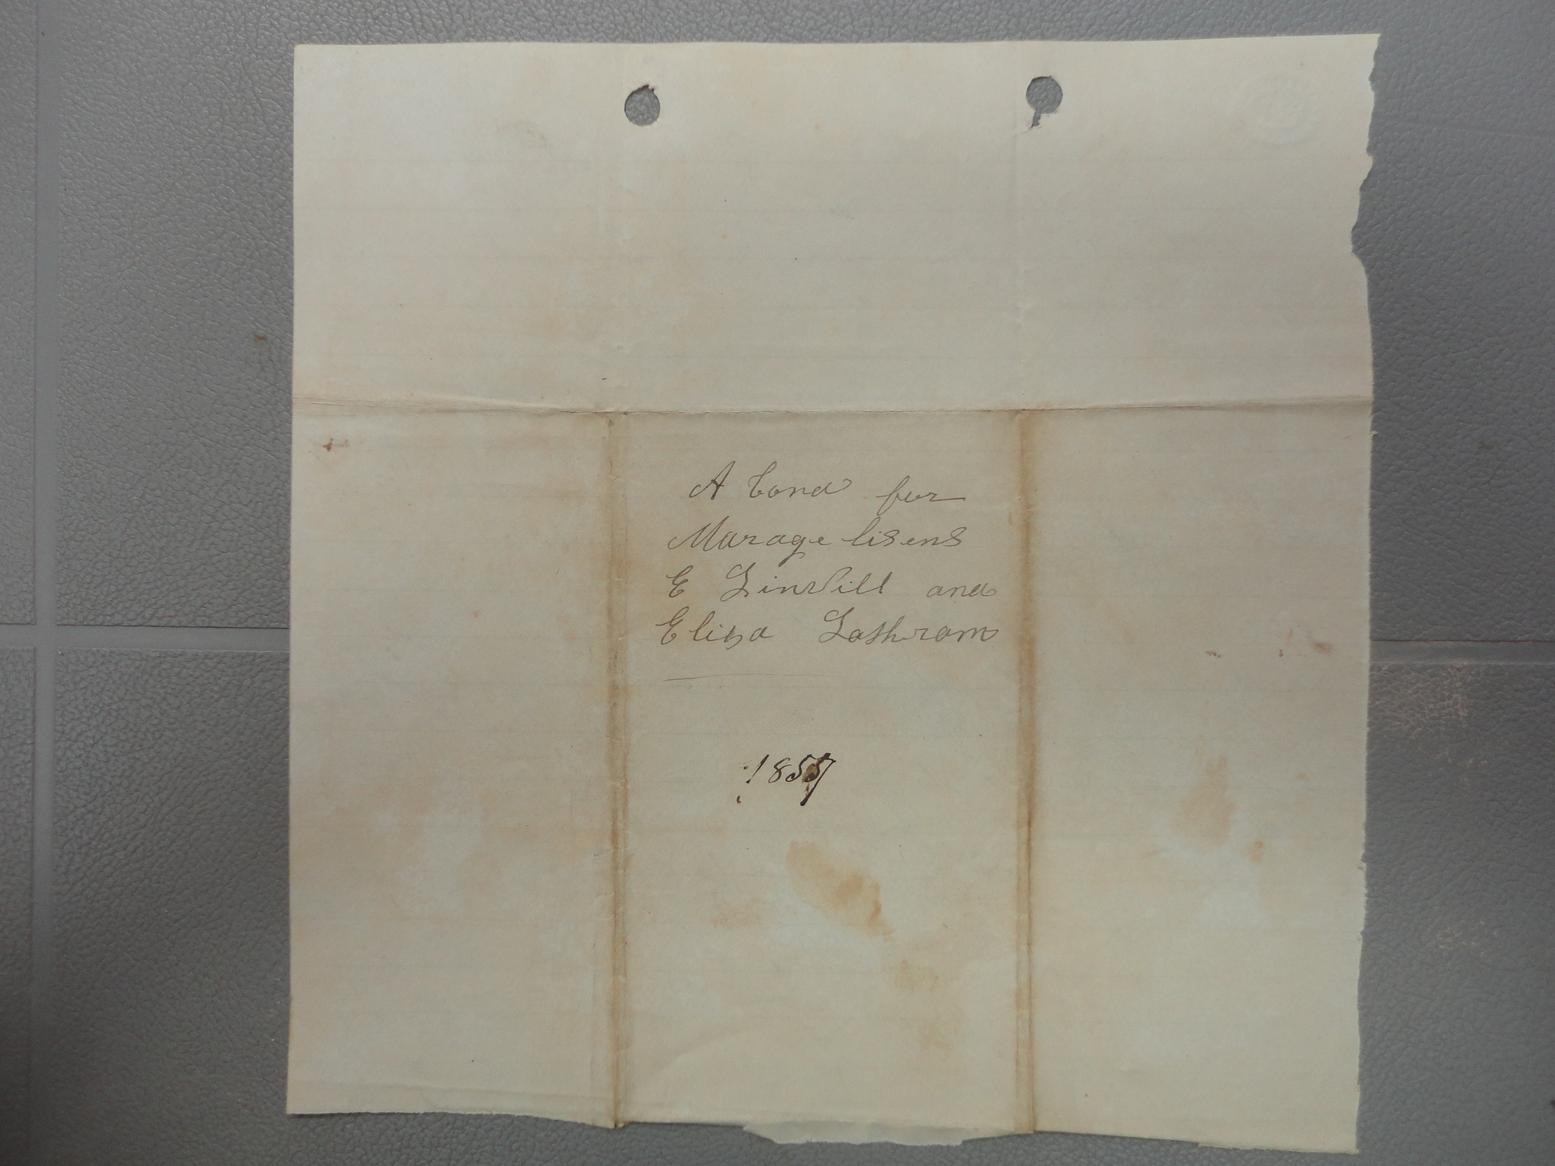 A bond for
Marage lisens
E Linvill and
Eliza Lathram
1857